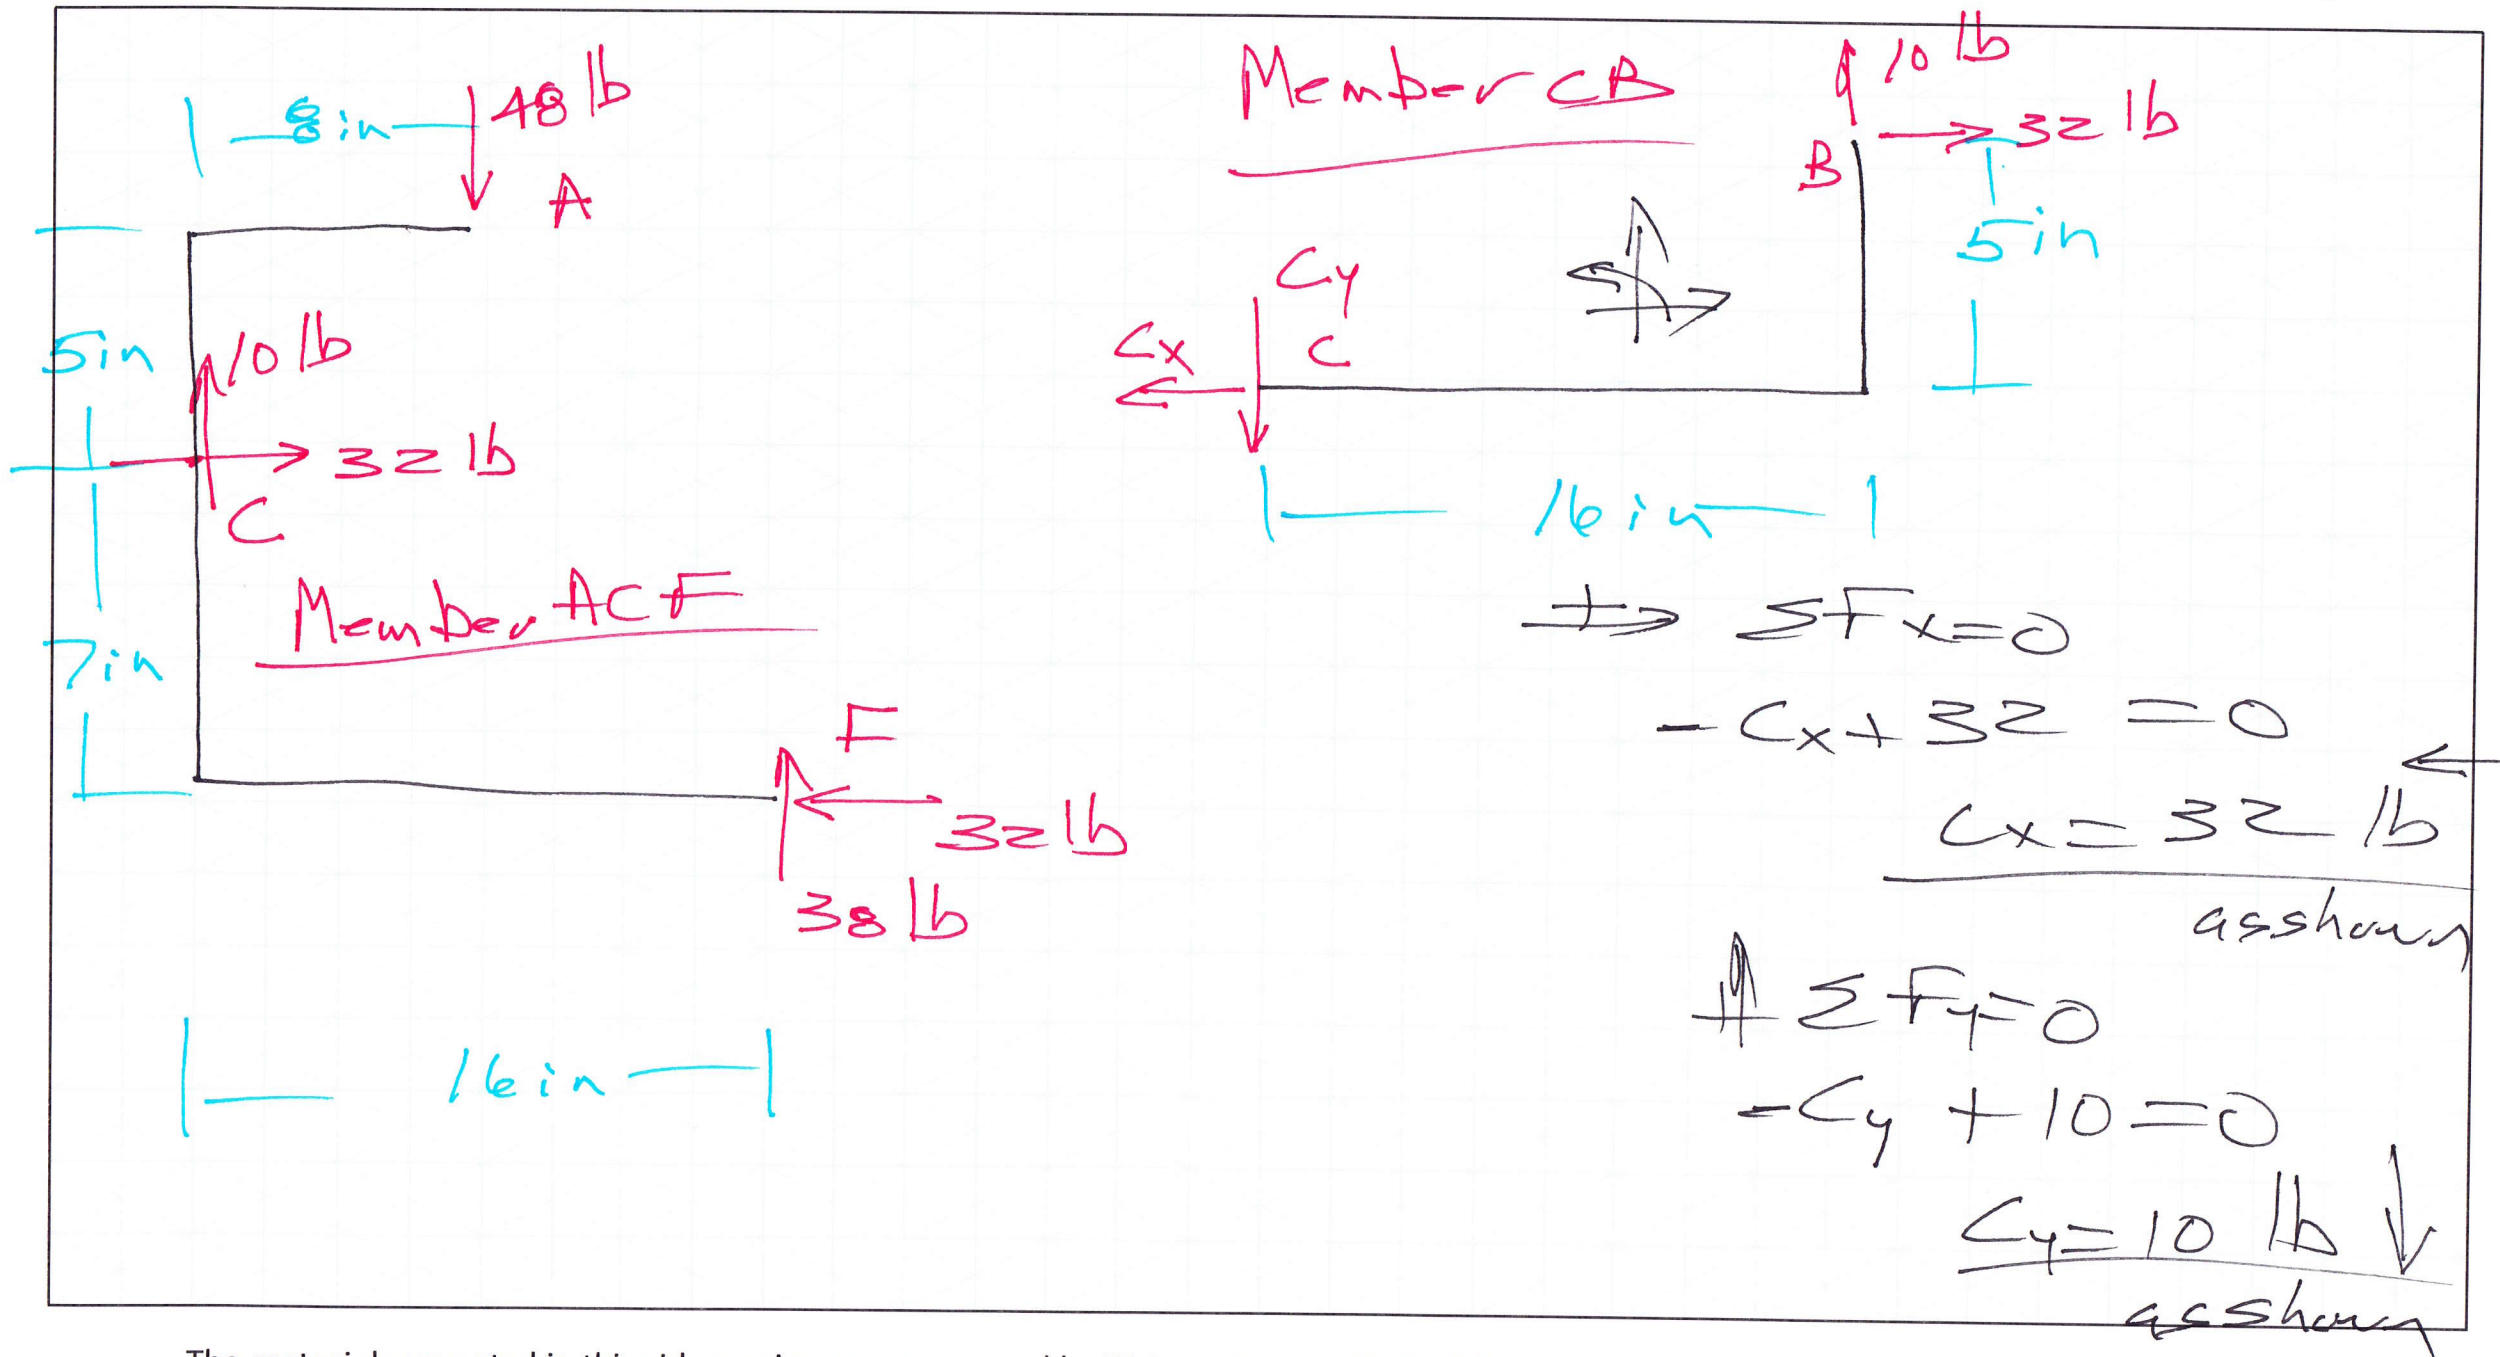 8 in
48 lb
A
5 in
10 lb
32 lb
C
Member ACF
7 in
F
32 lb
38 lb
16 in
Member CB
10 lb
32 lb
B
5 in
Cy
Cx
C
16 in
+→ ΣFx=0
-Cx+32 =0
Cx= 32 lb ←
as shown
+↑ ΣFy=0
-Cy + 10=0
Cy=10 lb ↓
as shown